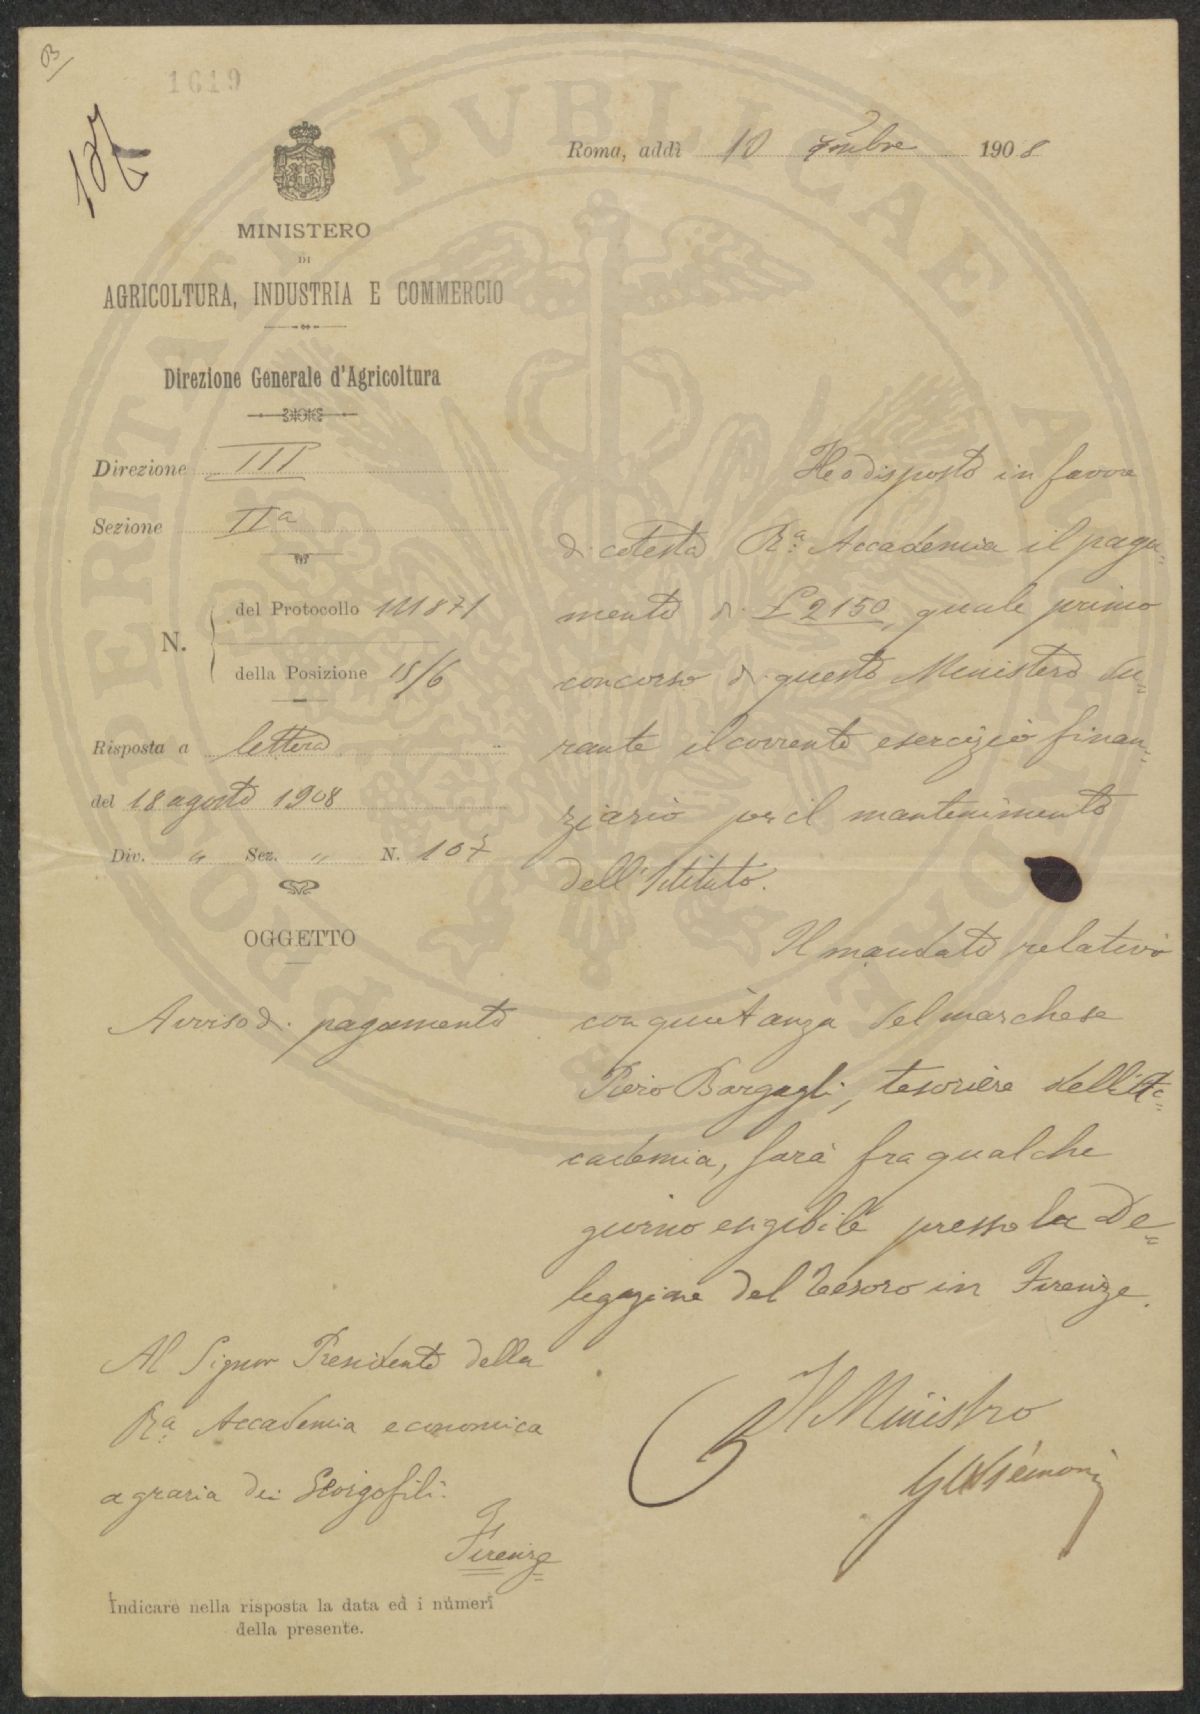 B
1619
Roma, addì 10 7mbre 1908
MINISTERO
DI
AGRICOLTURA, INDUSTRIA E COMMERCIO
Direzione Generale d'Agricoltura
Direzione III
Sezione IIª
N.
del Protocollo 111871
della Posizione 18/6
Risposta a lettera
del 18 agosto 1908
Div. " Sez. " N. 107
OGGETTO
Avviso di pagamento
Ho disposto in favore
di cotesta Rª. Accademia il paga=
mento di £ 2150, quale primo
concorso di questo Ministero du=
rante il corrente esercizio finan=
ziario per il mantenimento
dell'Istituto.
Il mandato relativo
con quietanza del marchese
Piero Bargagli, tesoriere dell'Ac=
cademia, sarà fra qualche
giorno esigibile presso la De=
legazione del Tesoro in Firenze.
Il Ministro
Al Signor Presidente della
Rª. Accademia economica
agraria dei Georgofili.
Firenze
Indicare nella risposta la data ed i numeri
della presente.
PROSPERITATI PVBLICAE AVGENDAE